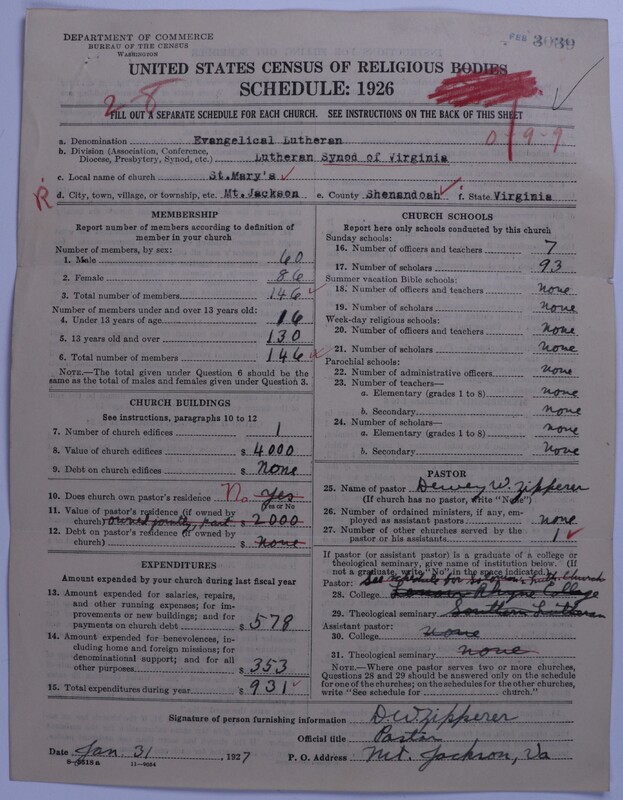 DEPARTMENT OF COMMERCE
BUREAU OF THE CENSUS
WASHINGTON
FEB 3039
UNITED STATES CENSUS OF RELIGIOUS BODIES
SCHEDULE: 1926
28
FILL OUT A SEPARATE SCHEDULE FOR EACH CHURCH. SEE INSTRUCTIONS ON THE BACK OF THIS SHEET
0 19-9
a. Denomination Evangelical Lutheran
b. Division (Association, Conference, Diocese, Presbytery, Synod, etc.) Lutheran Synod of Virginia
c. Local name of church St.Mary's
R
d. City, town, village, or township, etc. Mt.Jackson e. County Shenandoah f. State Virginia
MEMBERSHIP
Report number of members according to definition of
member in your church
Number of members, by sex:
1. Male 60
2. Female 86
3. Total number of members 146
Number of members under and over 13 years old:
4. Under 13 years of age 16
5. 13 years old and over 130
6. Total number of members 146
NOTE.—The total given under Question 6 should be
the same as the total of males and females given under Question 3.
CHURCH BUILDINGS
See instructions, paragraphs 10 to 12
7. Number of church edifices 1
8. Value of church edifices $ 4000
9. Debt on church edifices $ None
10. Does church own pastor's residence No Yes
Yes or No
11. Value of pastor's residence (if owned by
church) owned jointly, part $ 2000
12. Debt on pastor's residence (if owned by
church) $ None
EXPENDITURES
Amount expended by your church during last fiscal year
13. Amount expended for salaries, repairs,
and other running expenses; for im-
provements or new buildings; and for
payments on church debt $ 578
14. Amount expended for benevolences, in-
cluding home and foreign missions; for
denominational support; and for all
other purposes $ 353
15. Total expenditures during year $ 931
CHURCH SCHOOLS
Report here only schools conducted by this church
Sunday schools:
16. Number of officers and teachers 7
17. Number of scholars 93
Summer vacation Bible schools:
18. Number of officers and teachers none
19. Number of scholars none
Week-day religious schools:
20. Number of officers and teachers none
21. Number of scholars none
Parochial schools:
22. Number of administrative officers none
23. Number of teachers—
a. Elementary (grades 1 to 8) none
b. Secondary none
24. Number of scholars—
a. Elementary (grades 1 to 8) none
b. Secondary none
PASTOR
25. Name of pastor Dewey W. Zipperer
(If church has no pastor, write "None")
26. Number of ordained ministers, if any, em-
ployed as assistant pastors none
27. Number of other churches served by the
pastor or his assistants 1
If pastor (or assistant pastor) is a graduate of a college or
theological seminary, give name of institution below. (If
not a graduate, write "No" in the space indicated.)
Pastor: See schedule for Solomon's Luth. Church
28. College Lenoir Rhyne College
29. Theological seminary Southern Lutheran
Assistant pastor:
30. College none
31. Theological seminary none
NOTE.—Where one pastor serves two or more churches,
Questions 28 and 29 should be answered only on the schedule
for one of the churches; on the schedules for the other churches,
write "See schedule for church."
Signature of person furnishing information D.W. Zipperer
Official title Pastor
Date Jan. 31, 1927 P. O. Address Mt. Jackson, Va
8-2618a 11-9024